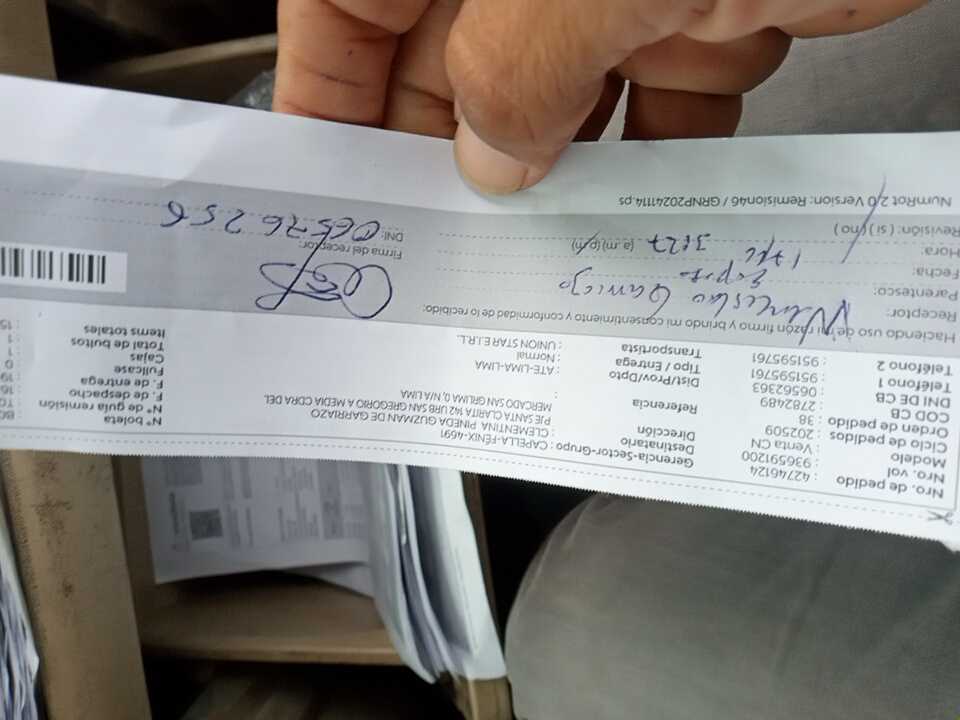 Nro. de pedido : 427461124
Nro. vol : 936591200
Modelo : Venta CN
Ciclo de pedidos : 202509
Orden de pedido : 38
COD CB : 2782489
DNI DE CB : 06562363
Teléfono 1 : 951595761
Teléfono 2 : 951595761
Gerencia-Sector-Grupo : CAPELLA-FÉNIX-4691
Destinatario : CLEMENTINA PINEDA GUZMAN DE GARRIAZO
Dirección : PJE SANTA CLARITA 142 URB SAN GREGORIO A MEDIA CDRA DEL MERCADO SAN GREGORIO 0, N/A LIMA
Referencia
Dist/Prov/Dpto : ATE-LIMA-LIMA
Tipo / Entrega : Normal
Transportista : UNION STAR E.I.R.L.
N° boleta
N° de guía remisión
F. de despacho
F. de entrega
Fullcase : 0
Cajas : 1
Total de bultos : 1
Items totales : 15
Haciendo uso de mi razón firmo y brindo mi consentimiento y conformidad de lo recibido:
Receptor: Wenceslao
Parentesco:
Fecha:
Hora: 3:27 (a.m)(p.m)
Revisión: ( si ) ( no )
Firma del receptor:
DNI: 06576256
NumRot 2.0 Version: Remision46 / GRNP20241114.ps